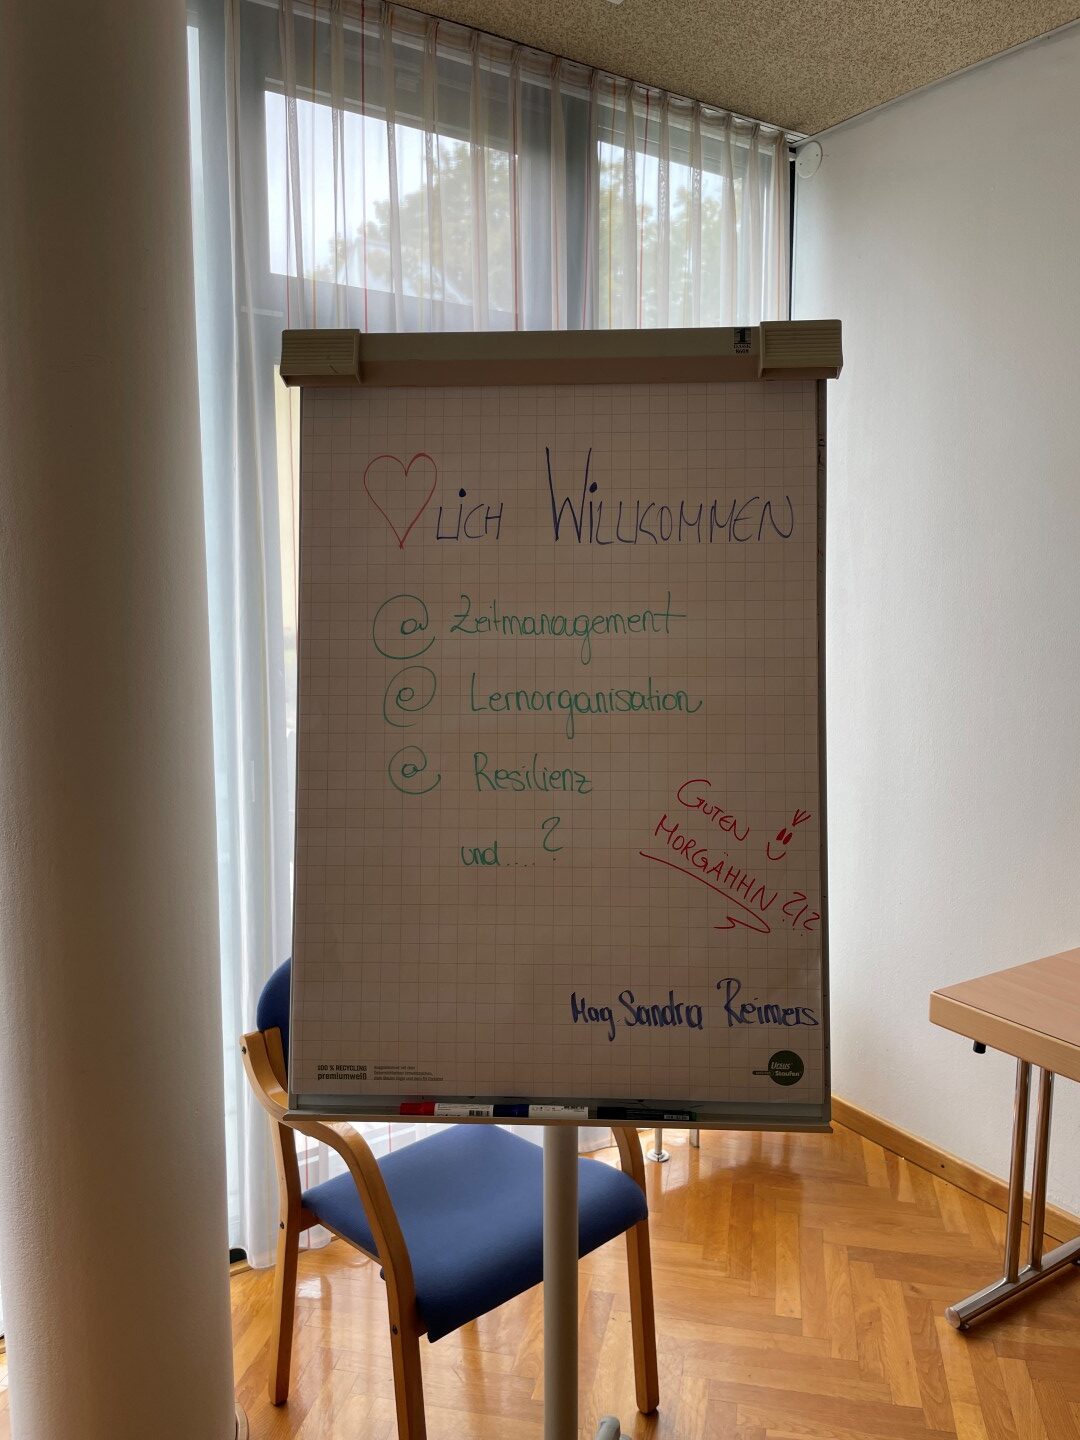 ♡LICH WILLKOMMEN
@ Zeitmanagement
@ Lernorganisation
@ Resilienz
und....?
GUTEN
MORGÄHHN ?!?
Mag Sandra Reimers
100 % RECYCLING
premiumweiß
Ursus
Staufen